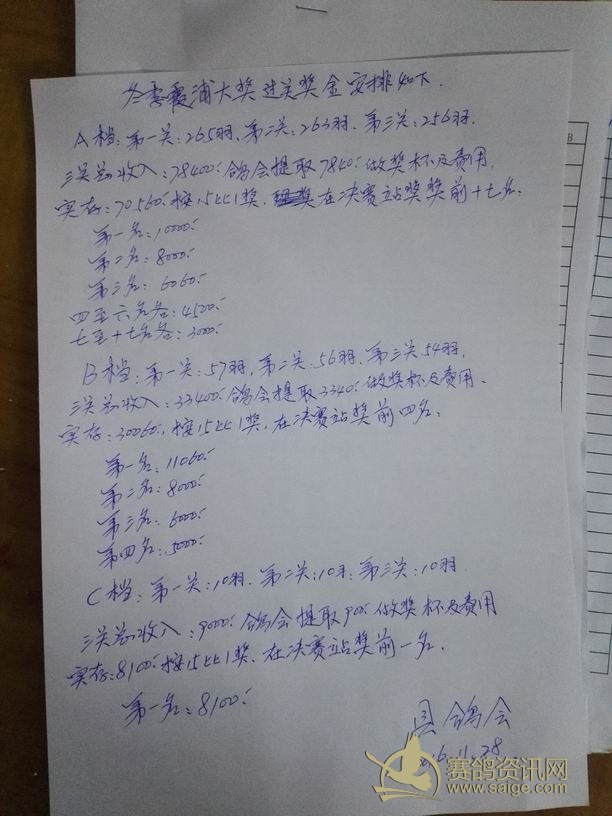 冬季霞浦大奖过关奖金安排如下.
A档:第一关:265羽,第二关:263羽,第三关:256羽.
三关总收入:78400.鸽会提取7840.做奖杯及费用.
实存:70560.按15比1奖.在决赛站奖奖前十七名.
第一名:10000.
第二名:8000.
第三名:6060.
四至六名各:4500.
七至十七名各:3000.
B档:第一关:57羽,第二关56羽,第三关54羽,
三关总收入:33400.鸽会提取3340.做奖杯及费用.
实存:30060.按15比1奖.在决赛站奖前四名.
第一名:11060.
第二名:8000.
第三名:6000.
第四名:5000.
C档:第一关:10羽.第二关:10羽.第三关:10羽.
三关总收入:9000.鸽会提取900.做奖杯及费用
实存:8100.按15比1奖.在决赛站奖前一名.
第一名:8100.
县鸽会
16.11.28
赛鸽资讯网
www.saige.com